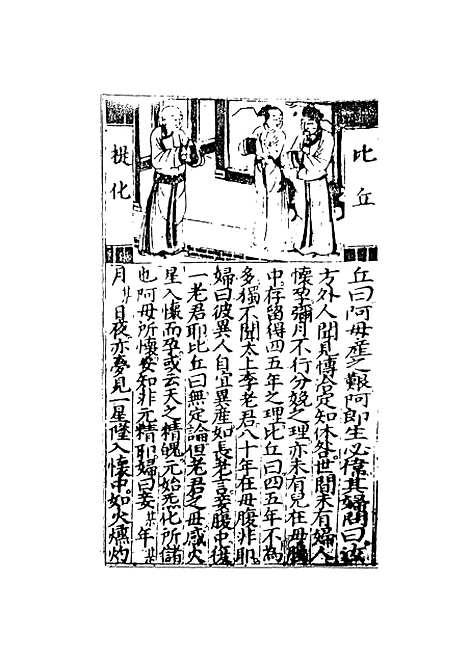 比丘
提化
丘曰阿母產之艱阿郎生必偉其婦問曰
方外人聞見博洽定知休咎世間未有婦人
懷孕彌月不行分娩之理亦未有兒在母腹
中存留得四五年之理比丘曰四五年不為
多獨不聞太上李老君八十年在母腹非耶
婦曰彼異人自宜異產如長老言妾腹中復
一老君耶比丘曰無定論但老君之母感火
星入懷而孕或云天之精魄元始炁化所儲
也阿母所懷安知非元精耶婦曰妾某年某
月某日夜亦夢見一星墜入懷中如火燻灼